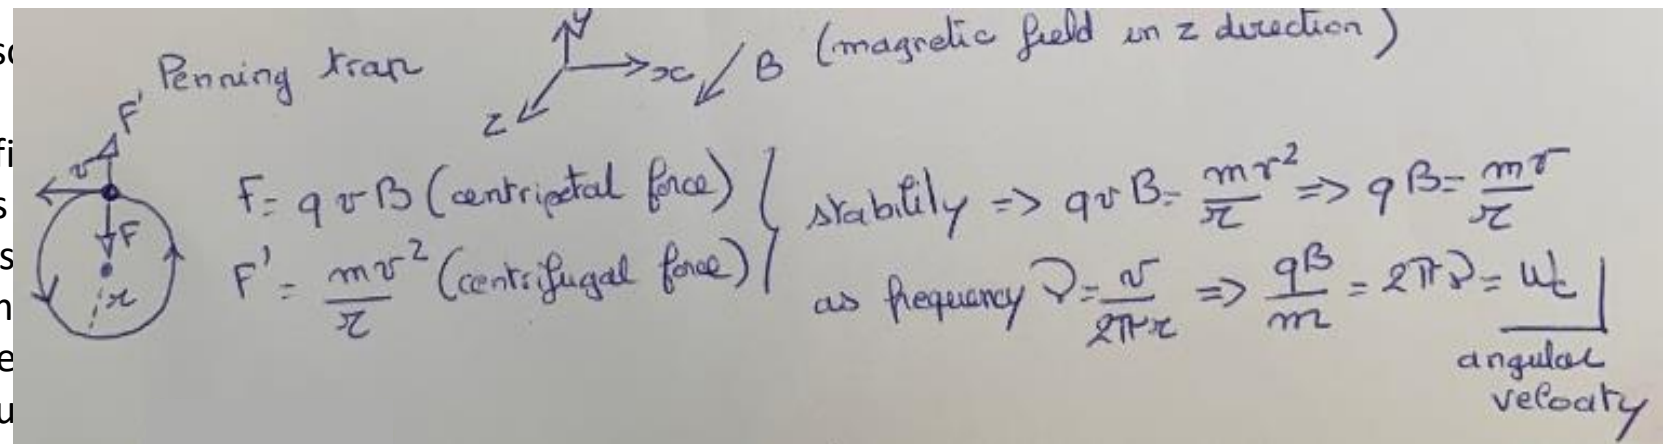 Penning trap
y
x
z
B (magnetic field in z direction)
F'
v
F
r
F = q v B (centripetal force)
F' = mv²/r (centrifugal force)
stability => qvB = mv²/r => qB = mv/r
as frequency ν = v/2πr => qB/m = 2πν = ωc
angular
velocity